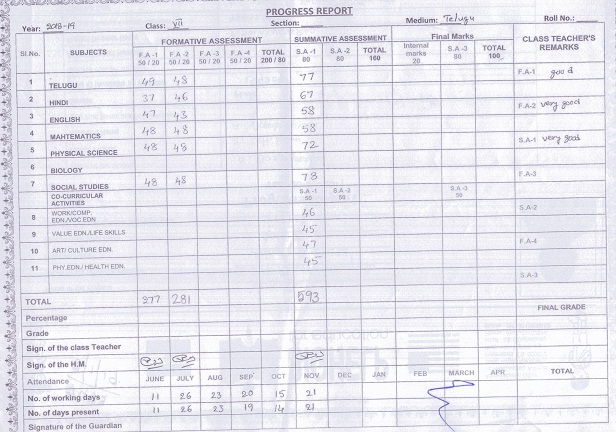 PROGRESS REPORT
Year: 2018-19 Class: VII Section: Medium: Telugu Roll No.:
Sl.No. SUBJECTS FORMATIVE ASSESSMENT SUMMATIVE ASSESSMENT Final Marks CLASS TEACHER'S REMARKS
F.A-1 50/20 F.A-2 50/20 F.A-3 50/20 F.A-4 50/20 TOTAL 200/80 S.A-1 80 S.A-2 80 TOTAL 160 Internal marks 20 S.A-3 80 TOTAL 100
1 TELUGU 49 48 77 F.A-1 good
2 HINDI 37 46 67 F.A-2 very good
3 ENGLISH 47 43 58
4 MAHTEMATICS 48 48 58 S.A-1 very good
5 PHYSICAL SCIENCE 48 48 72
6 BIOLOGY F.A-3
7 SOCIAL STUDIES 48 48 78
CO-CURRICULAR ACTIVITIES S.A-1 50 S.A-2 50 S.A-3 50
8 WORK/COMP. EDN./VOC.EDN 46 S.A-2
9 VALUE EDN./LIFE SKILLS 45
10 ART/ CULTURE EDN. 47 F.A-4
11 PHY.EDN./ HEALTH EDN. 45
S.A-3
TOTAL 277 281 593 FINAL GRADE
Percentage
Grade
Sign. of the class Teacher
Sign. of the H.M.
Attendance JUNE JULY AUG SEP OCT NOV DEC JAN FEB MARCH APR TOTAL
No. of working days 11 26 23 20 15 21
No. of days present 11 26 23 19 14 21
Signature of the Guardian